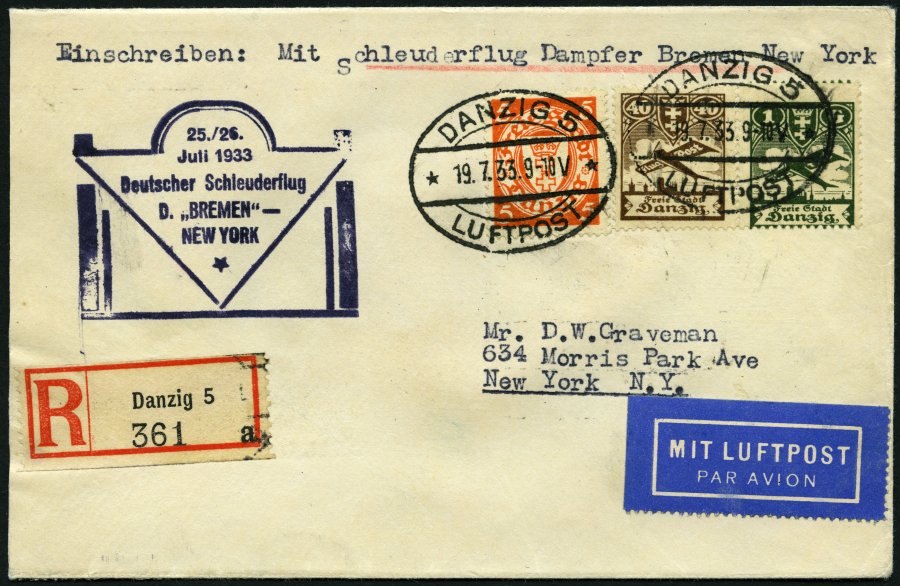 Einschreiben: Mit Schleuderflug Dampfer Bremen New York
25./26.
Juli 1933
Deutscher Schleuderflug
D. „BREMEN“ —
NEW YORK
DANZIG 5
19.7.33.9-10V
LUFTPOST
5
5
DANZIG 5
19.7.33.9-10V
LUFTPOST
40
Freie Stadt
Danzig.
1
Freie Stadt
Danzig.
Mr. D.W.Graveman
634 Morris Park Ave
New York N.Y.
R
Danzig 5
361 a
MIT LUFTPOST
PAR AVION